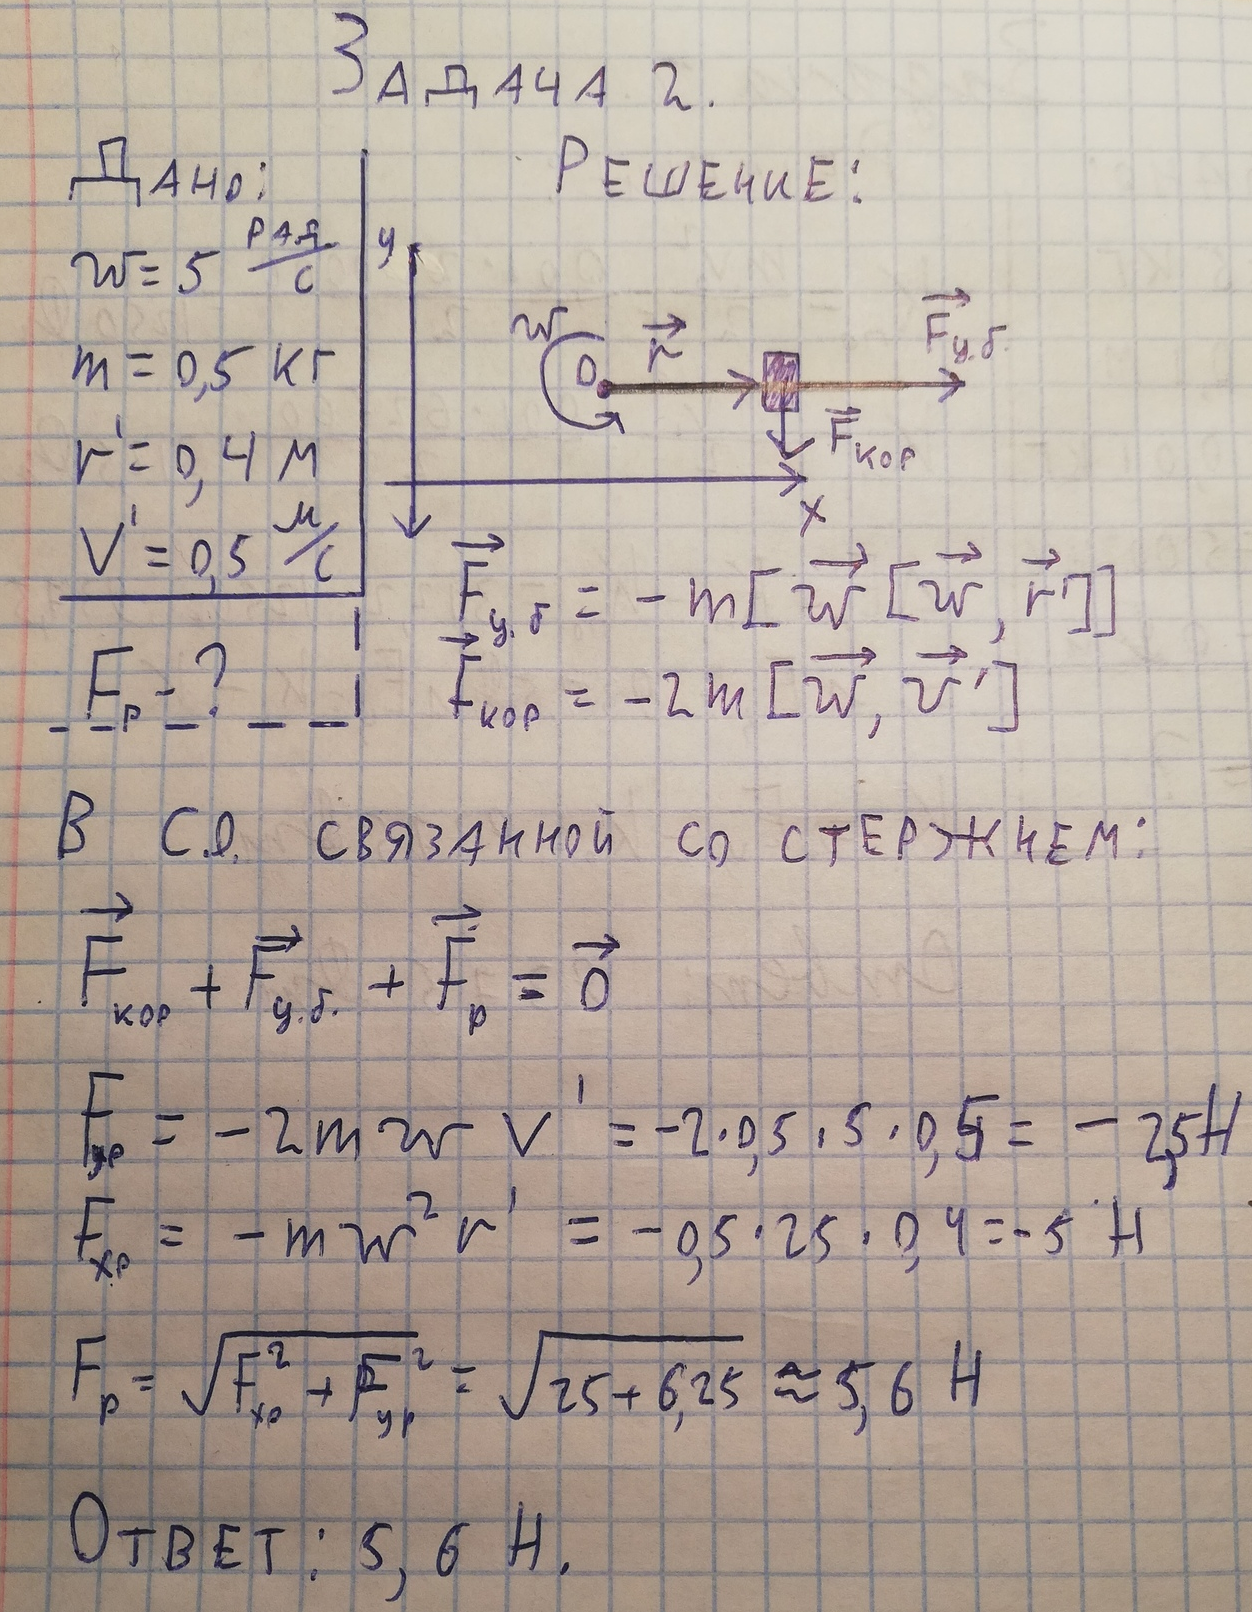 ЗАДАЧА 2.
ДАНО:
РЕШЕНИЕ:
w = 5 РАД/С
m = 0,5 КГ
r' = 0,4 М
V' = 0,5 М/С
Fр - ?
y
w
O
r⃗
F⃗ц.б.
F⃗кор
x
F⃗ц.б = -m[w⃗[w⃗, r⃗']]
F⃗кор = -2m[w⃗, v⃗']
В С.О. СВЯЗАННОЙ СО СТЕРЖНЕМ:
F⃗кор + F⃗ц.б. + F⃗р = 0⃗
Fур = -2mwV' = -2·0,5·5·0,5 = -2,5Н
Fхр = -mw²r' = -0,5·25·0,4 = -5 Н
Fр = √(Fхр² + Fур²) = √(25+6,25) ≈ 5,6 Н
ОТВЕТ: 5,6 Н.